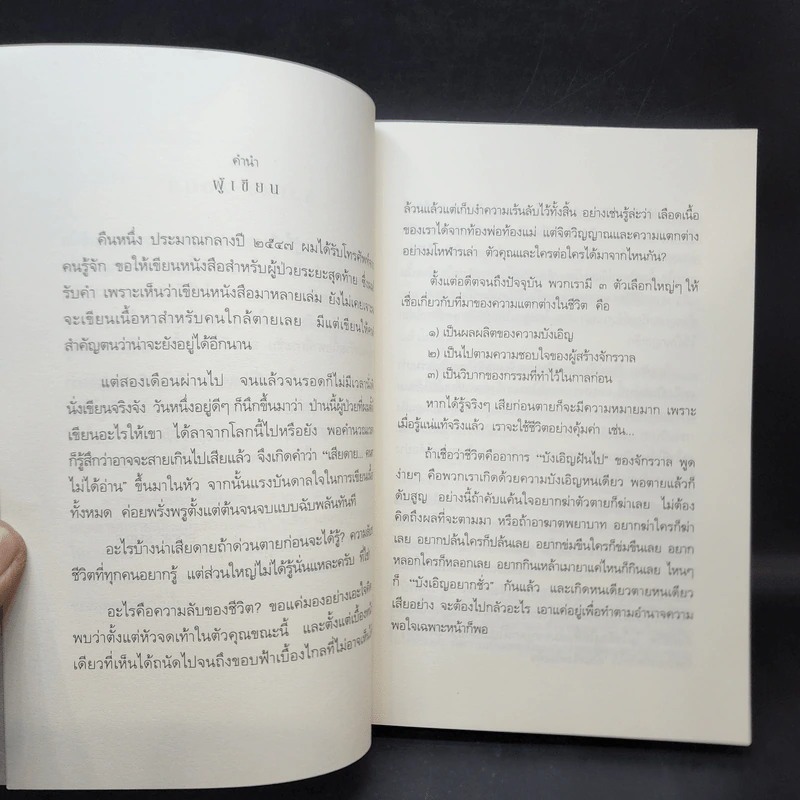 คำนำ
ผู้เขียน
คืนหนึ่ง ประมาณกลางปี ๒๕๔๗ ผมได้รับโทรศัพท์
คนรู้จัก ขอให้เขียนหนังสือสำหรับผู้ป่วยระยะสุดท้าย
รับคำ เพราะเห็นว่าเขียนหนังสือมาหลายเล่ม ยังไม่เคย
จะเขียนเนื้อหาสำหรับคนใกล้ตายเลย มีแต่เขียนให้
สำคัญตนว่าน่าจะยังอยู่ได้อีกนาน
แต่สองเดือนผ่านไป จนแล้วจนรอดก็ไม่มีเวลา
นั่งเขียนจริงจัง วันหนึ่งอยู่ดีๆ ก็นึกขึ้นมาว่า ป่านนี้ผู้ป่วยที่
เขียนอะไรให้เขา ได้ลาจากโลกนี้ไปหรือยัง พอคำนวณ
ก็รู้สึกว่าอาจจะสายเกินไปเสียแล้ว จึงเกิดคำว่า “เสียดาย...
ไม่ได้อ่าน” ขึ้นมาในหัว จากนั้นแรงบันดาลใจในการเขียน
ทั้งหมด ค่อยพรั่งพรูตั้งแต่ต้นจนจบแบบฉับพลันทันที
อะไรบ้างน่าเสียดายถ้าด่วนตายก่อนจะได้รู้?
ชีวิตที่ทุกคนอยากรู้ แต่ส่วนใหญ่ไม่ได้รู้นั่นแหละครับ
อะไรคือความลับของชีวิต? ขอแค่มองอย่างเอะใจ
พบว่าตั้งแต่หัวจดเท้าในตัวคุณขณะนี้ และตั้งแต่เบื้อง
เดียวที่เห็นได้ถนัดไปจนถึงขอบฟ้าเบื้องไกลที่ไม่อาจ
ล้วนแล้วแต่เก็บงำความเร้นลับไว้ทั้งสิ้น อย่างเช่นรู้ล่ะว่า เลือดเนื้อ
ของเราได้จากท้องพ่อท้องแม่ แต่จิตวิญญาณและความแตกต่าง
อย่างมโหฬารเล่า ตัวคุณและใครต่อใครได้มาจากไหนกัน?
ตั้งแต่อดีตจนถึงปัจจุบัน พวกเรามี ๓ ตัวเลือกใหญ่ๆ ให้
เชื่อเกี่ยวกับที่มาของความแตกต่างในชีวิต คือ
๑) เป็นผลผลิตของความบังเอิญ
๒) เป็นไปตามความชอบใจของผู้สร้างจักรวาล
๓) เป็นวิบากของกรรมที่ทำไว้ในกาลก่อน
หากได้รู้จริงๆ เสียก่อนตายก็จะมีความหมายมาก เพราะ
เมื่อรู้แน่แท้จริงแล้ว เราจะใช้ชีวิตอย่างคุ้มค่า เช่น...
ถ้าเชื่อว่าชีวิตคืออาการ “บังเอิญฝันไป” ของจักรวาล พูด
ง่ายๆ คือพวกเราเกิดด้วยความบังเอิญหนเดียว พอตายแล้วก็
ดับสูญ อย่างนี้ถ้าคับแค้นใจอยากฆ่าตัวตายก็ฆ่าเลย ไม่ต้อง
คิดถึงผลที่จะตามมา หรือถ้าอาฆาตพยาบาท อยากฆ่าใครก็ฆ่า
เลย อยากปล้นใครก็ปล้นเลย อยากข่มขืนใครก็ข่มขืนเลย อยาก
หลอกใครก็หลอกเลย อยากกินเหล้าเมายาแค่ไหนก็กินเลย ไหนๆ
ก็ “บังเอิญอยากชั่ว” กันแล้ว และเกิดหนเดียวตายหนเดียว
เสียอย่าง จะต้องไปกลัวอะไร เอาแค่อยู่เพื่อทำตามอำนาจความ
พอใจเฉพาะหน้าก็พอ